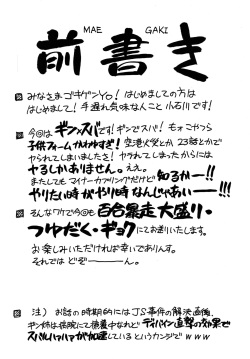 MAE GAKI
前書き
みなさまゴキゲンYo! はじめましての方は
はじめまして! 手遅れ気味なんこと 小石川です!
今回はギンガ×スバです!ギンでスバ! もォこやつら
子供フォームかわゆすぎ! 空港火災とか 23話とかで
やられてしまいましたさ! ヤラれてしまったからには
ヤるしかありません。ええ。
またしても マイナーカップリングだけど 知るかー!!
やりたい時がやり時なんじゃあいー!!!
そんなワケで今回も 百合暴走大盛り・
つゆだく・ギョクにてお送りいたします。
お楽しみいただければ幸いでありんす。
それでは どぞ———ん。
注) お話の時期的にはJS事件の解決直後、
ギン姉は病院にて療養中なれど ディバイン直撃の効果で
スバルハァハァが加速しているというカンジで www